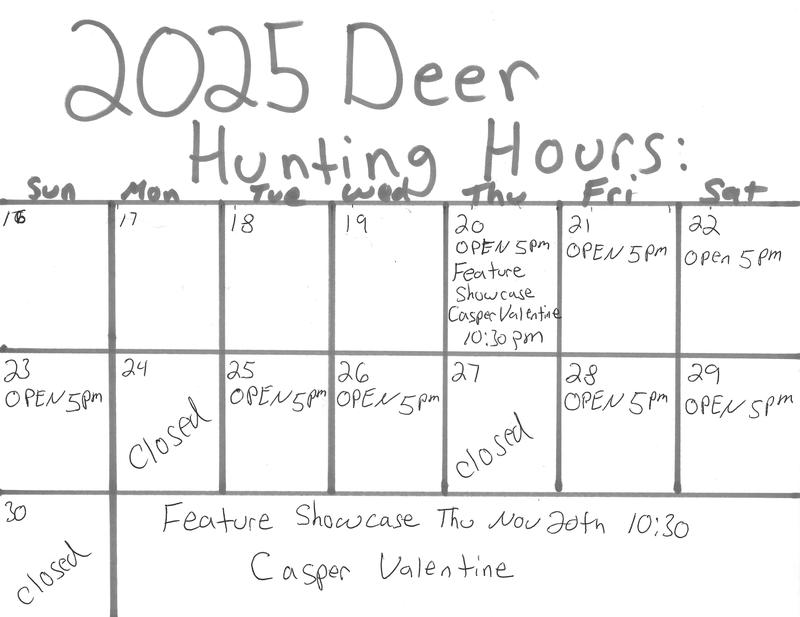 2025 Deer
Hunting Hours:
Sun Mon Tue Wed Thu Fri Sat
16 17 18 19 20 21 22
OPEN 5pm OPEN 5pm Open 5pm
Feature
Showcase
Casper Valentine
10:30 pm
23 24 25 26 27 28 29
OPEN 5pm closed OPEN 5pm OPEN 5pm closed OPEN 5pm OPEN 5pm
30 Feature Showcase Thu Nov 20th 10:30
closed Casper Valentine